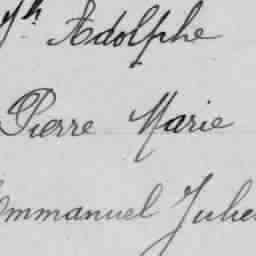 Adolphe
Pierre Marie
Emmanuel Jules